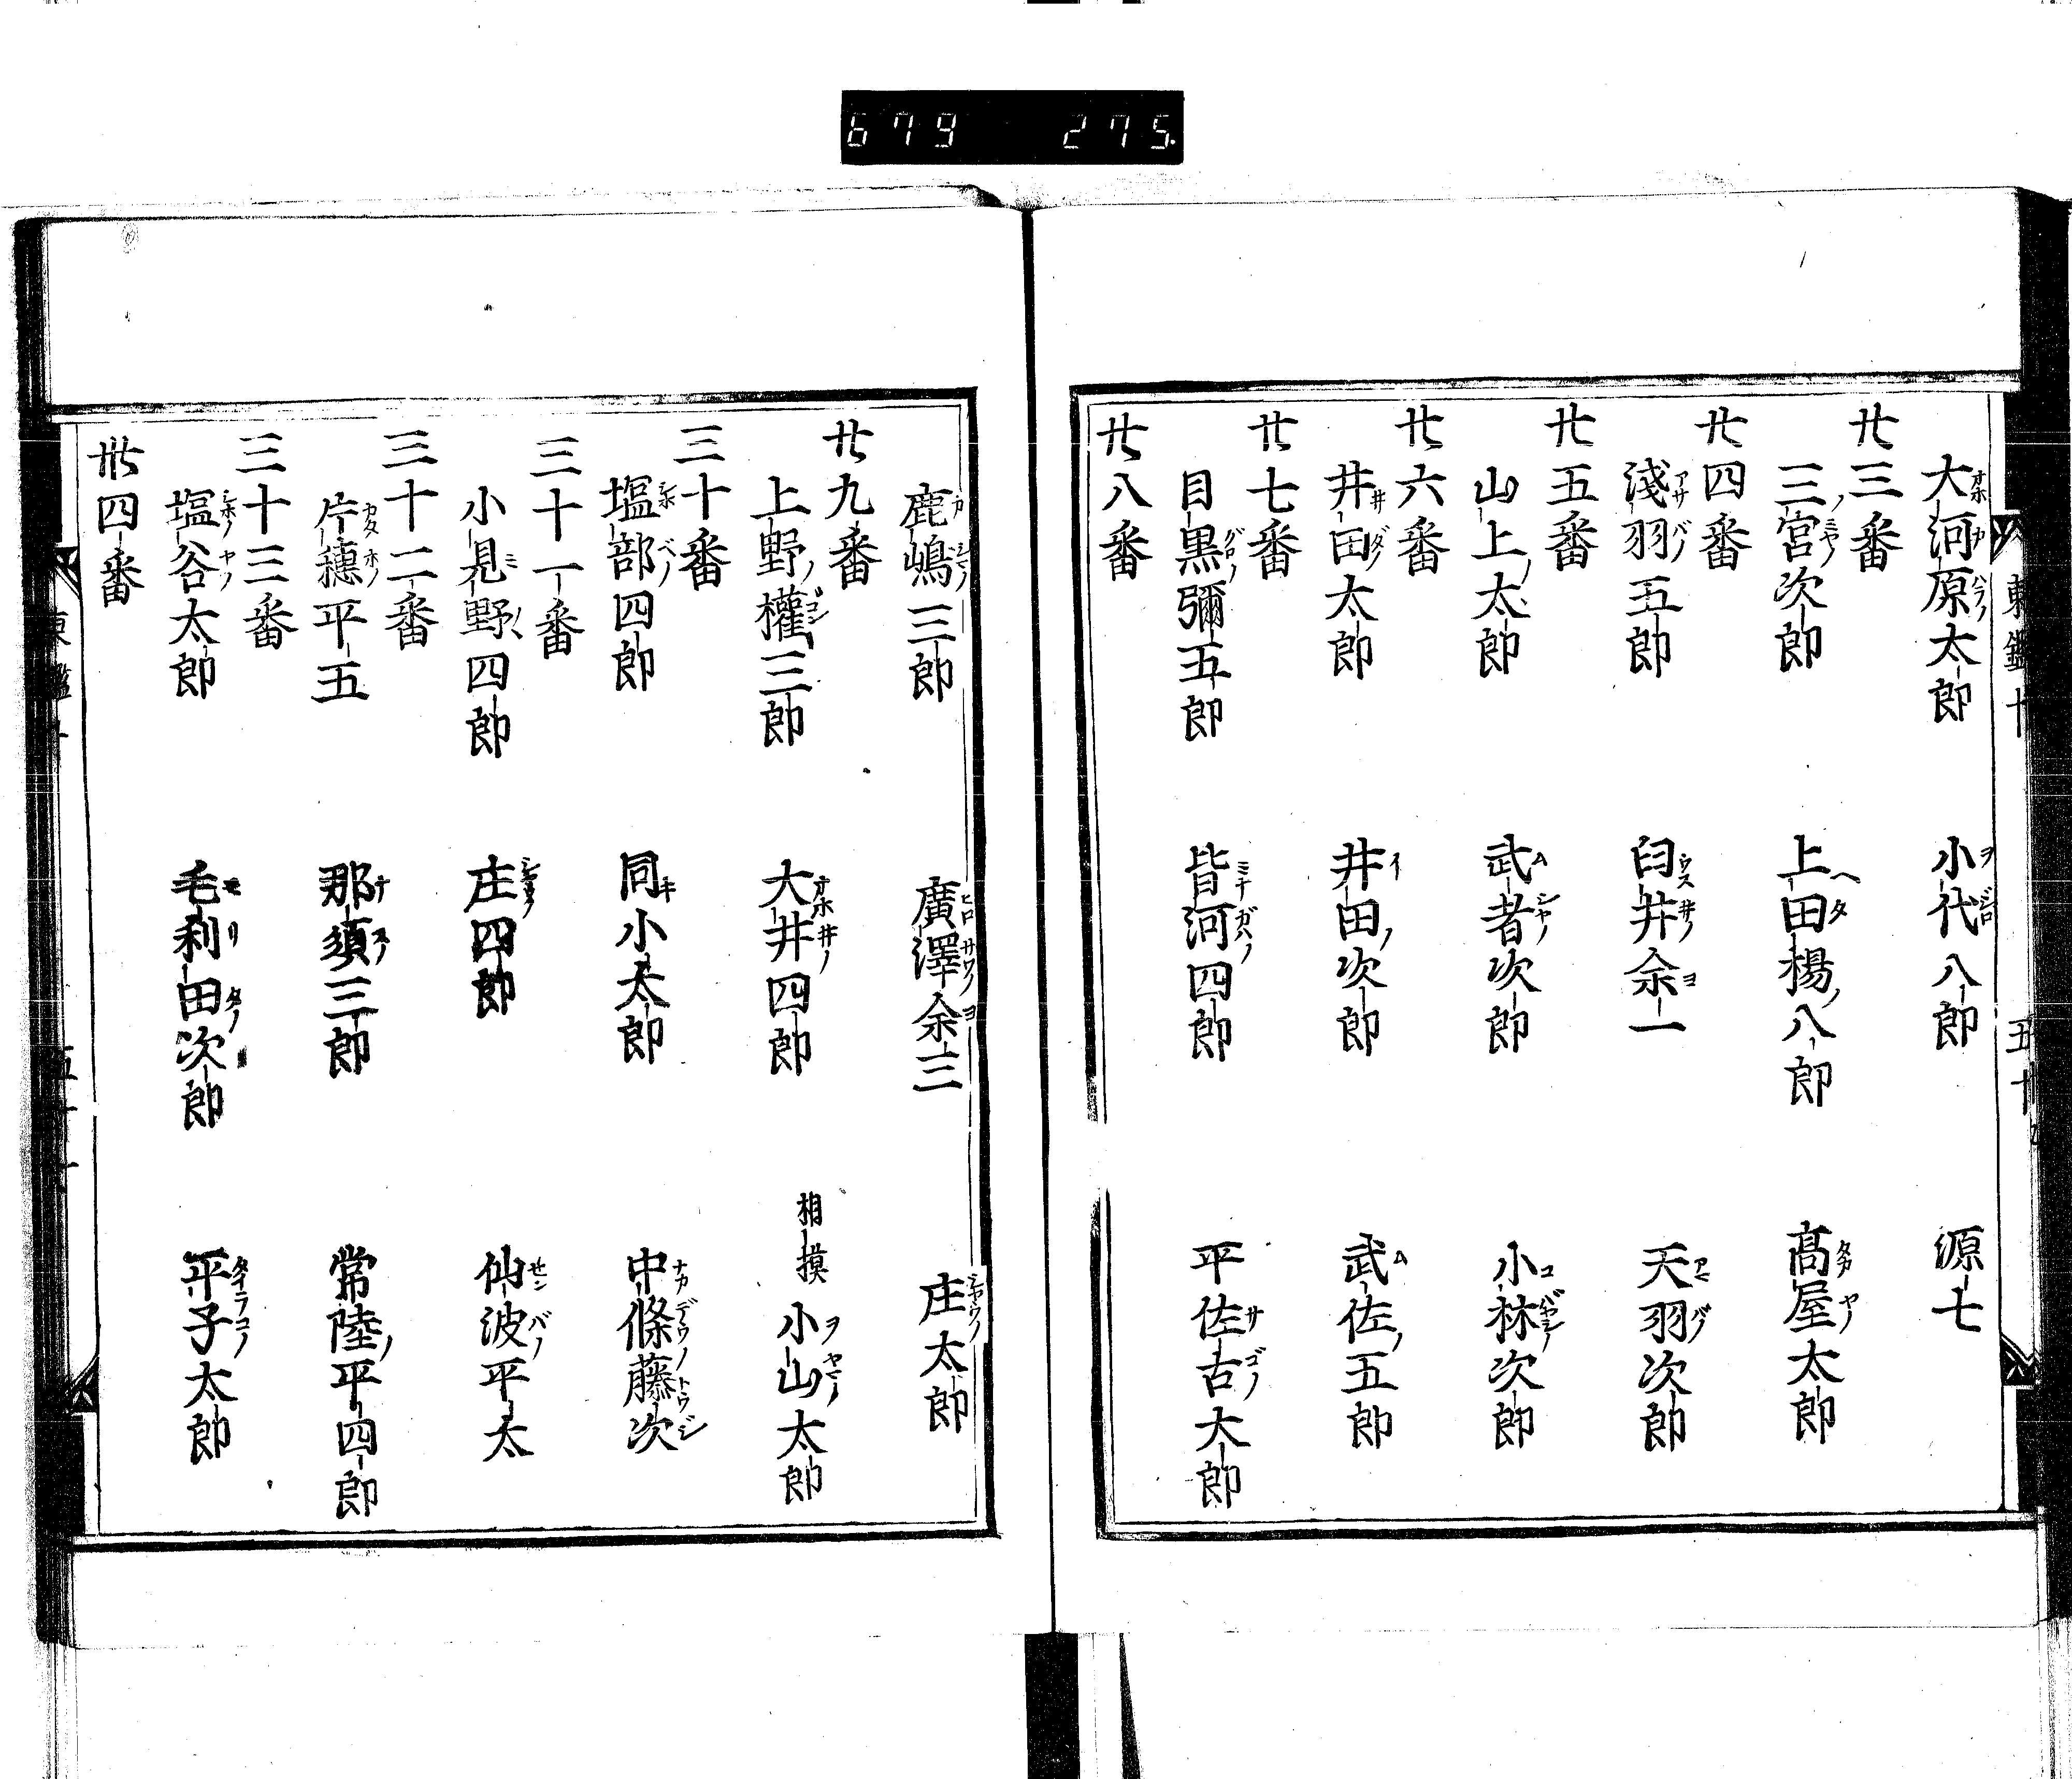 679 275
大河原太郎 小代八郎 源七
廿三番
三宮次郎 上田楊八郎 髙屋太郎
廿四番
淺羽五郎 臼井余一 天羽次郎
廿五番
山上太郎 武者次郎 小林次郎
廿六番
井田太郎 井田次郎 武佐五郎
廿七番
目黒彌五郎 皆河四郎 平佐古大郎
廿八番
鹿嶋三郎 廣澤余三 庄太郎
廿九番
上野權三郎 大井四郎 相摸小山太郎
三十番
塩部四郎 同小太郎 中條藤次
三十一番
小見野四郎 庄四郎 仙波平太
三十二番
片穗平五 那須三郎 常陸平四郎
三十三番
塩谷太郎 毛利田次郎 平子太郎
丗四番